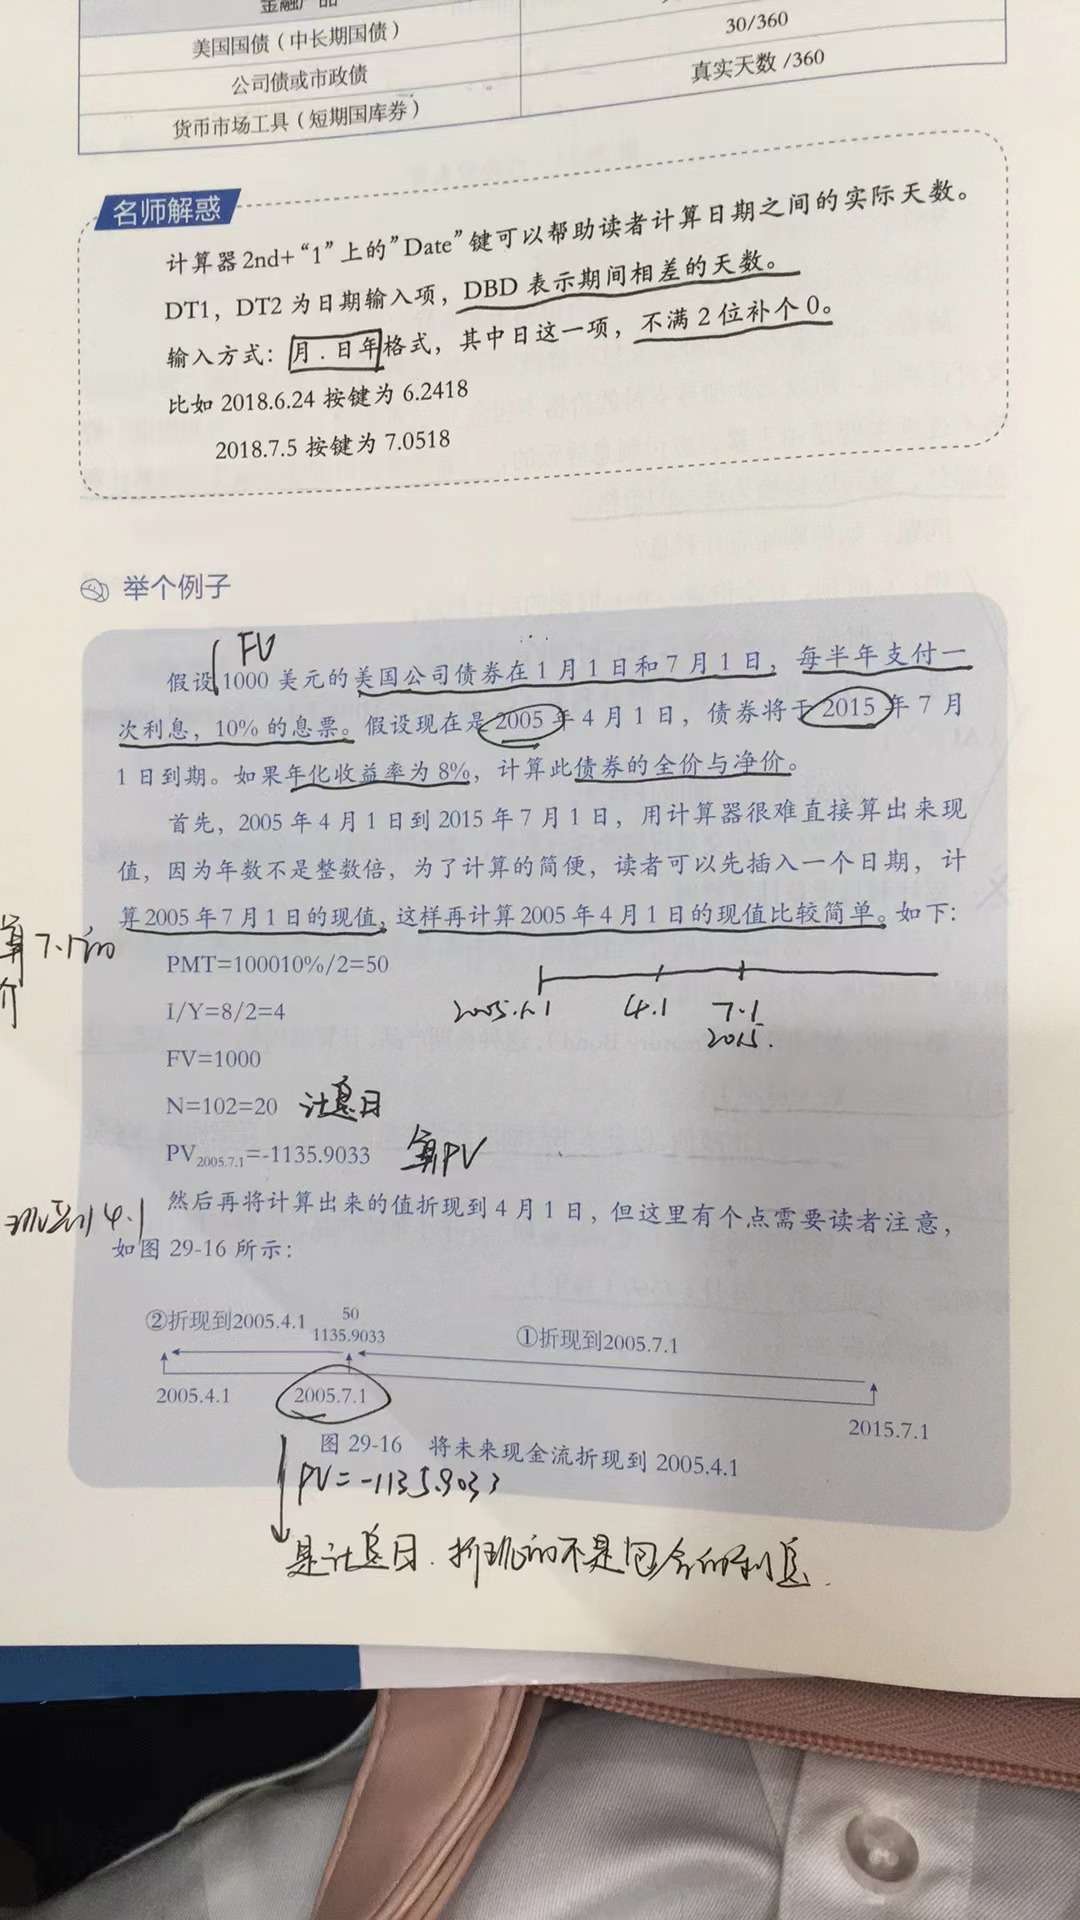 金融产品
美国国债（中长期国债）
30/360
公司债或市政债
真实天数 /360
货币市场工具（短期国库券）
名师解惑
计算器 2nd+ “1” 上的”Date” 键可以帮助读者计算日期之间的实际天数。
DT1，DT2 为日期输入项，DBD 表示期间相差的天数。
输入方式：月 . 日年格式，其中日这一项，不满 2 位补个 0。
比如 2018.6.24 按键为 6.2418
2018.7.5 按键为 7.0518
举个例子
FV
假设 1000 美元的美国公司债券在 1 月 1 日和 7 月 1 日，每半年支付一
次利息，10% 的息票。假设现在是 2005 年 4 月 1 日，债券将于 2015 年 7 月
1 日到期。如果年化收益率为 8%，计算此债券的全价与净价。
首先，2005 年 4 月 1 日到 2015 年 7 月 1 日，用计算器很难直接算出来现
值，因为年数不是整数倍，为了计算的简便，读者可以先插入一个日期，计
算 2005 年 7 月 1 日的现值，这样再计算 2005 年 4 月 1 日的现值比较简单。如下：
算 7.1的
价
PMT=100010%/2=50
I/Y=8/2=4
2005.1.1 4.1 7.1
2015.
FV=1000
N=102=20 计息日
PV2005.7.1=-1135.9033 算PV
然后再将计算出来的值折现到 4 月 1 日，但这里有个点需要读者注意，
4.1
如图 29-16 所示：
②折现到2005.4.1
50
1135.9033
①折现到2005.7.1
2005.4.1
2005.7.1
2015.7.1
图 29-16 将未来现金流折现到 2005.4.1
PV=-1135.9033
是计息日.折现的不是包含的利息.